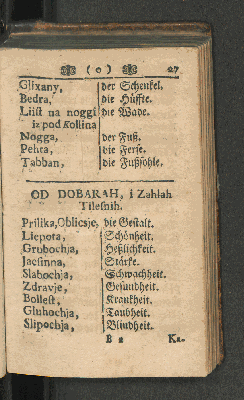 ( o ) 27
Glixany, der Schenkel.
Bedra, die Hüffte.
Liist na noggi die Wade.
iz pod Kollina
Nogga, der Fuß.
Petra, die Ferse.
Tabban, die Fußsohle.
OD DOBARAH, i Zahlah
Tilesnih.
Prilika, Oblicsje, die Gestalt.
Liepota, Schönheit.
Grubochja, Heßlichkeit.
Jacsinna, Stärke.
Slabochja, Schwachheit.
Zdravje, Gesundheit.
Bollest, Krankheit.
Gluhochja, Taubheit.
Slipochja, Blindheit.
B 2 Ka-